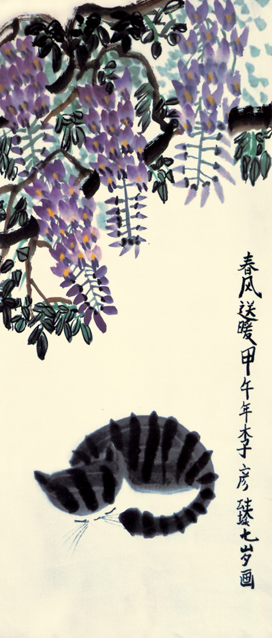 春风送暖甲午年李彦臻七岁画